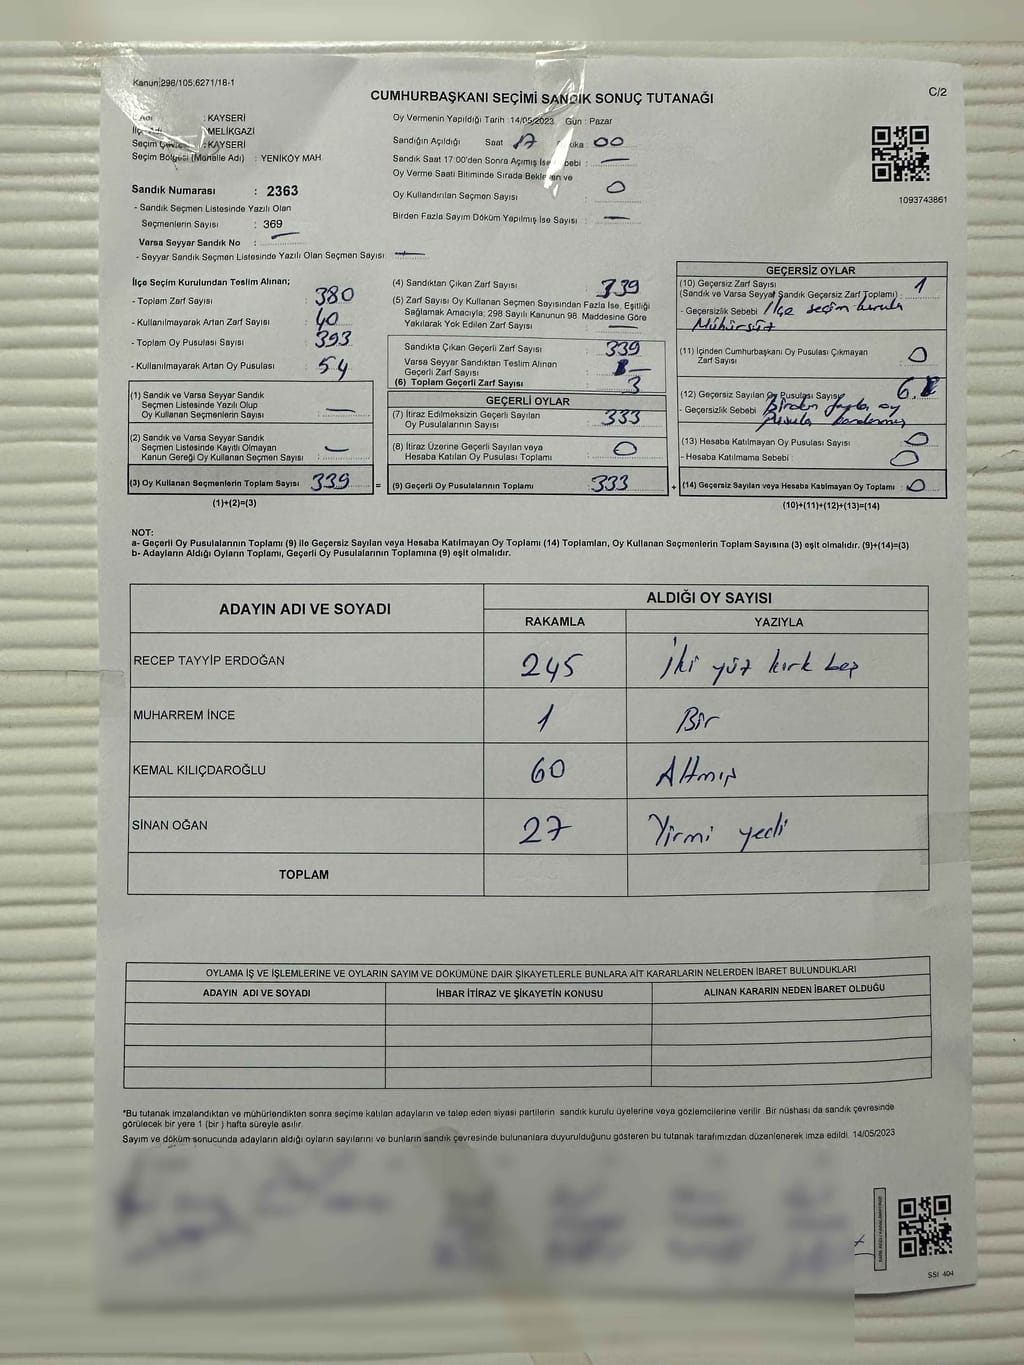 Kanun:298/105;6271/18-1
C/2
CUMHURBAŞKANI SEÇİMİ SANDIK SONUÇ TUTANAĞI
Adı : KAYSERİ
MELİKGAZİ
Seçim Çevresi : KAYSERİ
Seçim Bölgesi (Mahalle Adı) : YENİKÖY MAH
Sandık Numarası : 2363
- Sandık Seçmen Listesinde Yazılı Olan
Seçmenlerin Sayısı : 369
Varsa Seyyar Sandık No :
- Seyyar Sandık Seçmen Listesinde Yazılı Olan Seçmen Sayısı : —
Oy Vermenin Yapıldığı Tarih : 14/05/2023 Gün : Pazar
Sandığın Açıldığı Saat 17 00
Sandık Saat 17:00'den Sonra Açılmış İse Sebebi : —
Oy Verme Saati Bitiminde Sırada Bekleyen ve
Oy Kullandırılan Seçmen Sayısı : 0
Birden Fazla Sayım Döküm Yapılmış İse Sayısı : —
1093743861
İlçe Seçim Kurulundan Teslim Alınan;
- Toplam Zarf Sayısı : 380
- Kullanılmayarak Artan Zarf Sayısı : 40
- Toplam Oy Pusulası Sayısı : 393
- Kullanılmayarak Artan Oy Pusulası : 54
(1) Sandık ve Varsa Seyyar Sandık
Seçmen Listesinde Yazılı Olup
Oy Kullanan Seçmenlerin Sayısı : —
(2) Sandık ve Varsa Seyyar Sandık
Seçmen Listesinde Kayıtlı Olmayan
Kanun Gereği Oy Kullanan Seçmen Sayısı : —
(3) Oy Kullanan Seçmenlerin Toplam Sayısı 339 =
(1)+(2)=(3)
(4) Sandıktan Çıkan Zarf Sayısı : 339
(5) Zarf Sayısı Oy Kullanan Seçmen Sayısından Fazla İse, Eşitliği
Sağlamak Amacıyla; 298 Sayılı Kanunun 98 Maddesine Göre
Yakılarak Yok Edilen Zarf Sayısı : —
Sandıkta Çıkan Geçerli Zarf Sayısı : 339
Varsa Seyyar Sandıktan Teslim Alınan
Geçerli Zarf Sayısı : —
(6) Toplam Geçerli Zarf Sayısı : 3
GEÇERLİ OYLAR
(7) İtiraz Edilmeksizin Geçerli Sayılan
Oy Pusulalarının Sayısı : 333
(8) İtiraz Üzerine Geçerli Sayılan veya
Hesaba Katılan Oy Pusulası Toplamı : 0
(9) Geçerli Oy Pusulalarının Toplamı : 333 +
GEÇERSİZ OYLAR
(10) Geçersiz Zarf Sayısı
(Sandık ve Varsa Seyyar Sandık Geçersiz Zarf Toplamı) : 1
- Geçersizlik Sebebi : İlçe seçim kurulu
Mühürsüz
(11) İçinden Cumhurbaşkanı Oy Pusulası Çıkmayan
Zarf Sayısı : 0
(12) Geçersiz Sayılan Oy Pusulası Sayısı : 6
- Geçersizlik Sebebi : Birden fazla oy
pusula
(13) Hesaba Katılmayan Oy Pusulası Sayısı : 0
- Hesaba Katılmama Sebebi : 0
(14) Geçersiz Sayılan veya Hesaba Katılmayan Oy Toplamı : 0
(10)+(11)+(12)+(13)=(14)
NOT:
a- Geçerli Oy Pusulalarının Toplamı (9) ile Geçersiz Sayılan veya Hesaba Katılmayan Oy Toplamı (14) Toplamları, Oy Kullanan Seçmenlerin Toplam Sayısına (3) eşit olmalıdır. (9)+(14)=(3)
b- Adayların Aldığı Oyların Toplamı, Geçerli Oy Pusulalarının Toplamına (9) eşit olmalıdır.
ADAYIN ADI VE SOYADI
ALDIĞI OY SAYISI
RAKAMLA YAZIYLA
RECEP TAYYİP ERDOĞAN 245 İki yüz kırk beş
MUHARREM İNCE 1 Bir
KEMAL KILIÇDAROĞLU 60 Altmış
SİNAN OĞAN 27 Yirmi yedi
TOPLAM
OYLAMA İŞ VE İŞLEMLERİNE VE OYLARIN SAYIM VE DÖKÜMÜNE DAİR ŞİKAYETLERLE BUNLARA AİT KARARLARIN NELERDEN İBARET BULUNDUKLARI
ADAYIN ADI VE SOYADI İHBAR İTİRAZ VE ŞİKAYETİN KONUSU ALINAN KARARIN NEDEN İBARET OLDUĞU
*Bu tutanak imzalandıktan ve mühürlendikten sonra seçime katılan adayların ve talep eden siyasi partilerin sandık kurulu üyelerine veya gözlemcilerine verilir. Bir nüshası da sandık çevresinde
görülecek bir yere 1 (bir ) hafta süreyle asılır.
Sayım ve döküm sonucunda adayların aldığı oyların sayılarını ve bunların sandık çevresinde bulunanlara duyurulduğunu gösteren bu tutanak tarafımızdan düzenlenerek imza edildi. 14/05/2023
SSI 404